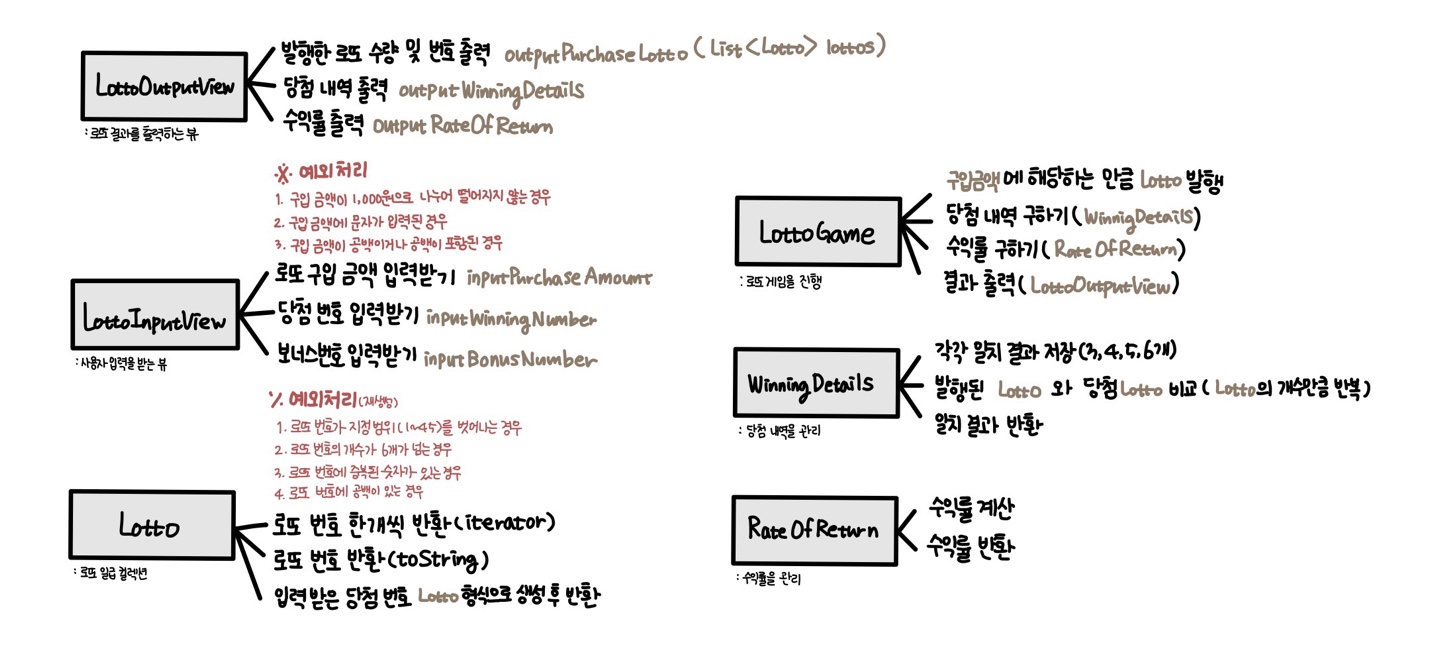 LottoOutputView
: 로또 결과를 출력하는 뷰
발행한 로또 수량 및 번호 출력 outputPurchaseLotto(List<Lotto> lottos)
당첨 내역 출력 outputWinningDetails
수익률 출력 outputRateOfReturn
※ 예외처리
1. 구입 금액이 1,000원으로 나누어 떨어지지 않는 경우
2. 구입 금액에 문자가 입력된 경우
3. 구입 금액이 공백이거나 공백이 포함된 경우
LottoInputView
: 사용자 입력을 받는 뷰
로또 구입 금액 입력받기 inputPurchaseAmount
당첨 번호 입력받기 inputWinningNumber
보너스번호 입력받기 inputBonusNumber
※ 예외처리(재생성)
1. 로또 번호가 지정범위(1~45)를 벗어나는 경우
2. 로또 번호의 개수가 6개가 넘는 경우
3. 로또 번호에 중복된 숫자가 있는 경우
4. 로또 번호에 공백이 있는 경우
Lotto
: 로또 일급 컬렉션
로또 번호 한개씩 반환(iterator)
로또 번호 반환(toString)
입력 받은 당첨 번호 Lotto 형식으로 생성 후 반환
LottoGame
: 로또 게임을 진행
구입금액에 해당하는 만큼 Lotto 발행
당첨 내역 구하기(WinnigDetails)
수익률 구하기(RateOfReturn)
결과 출력(LottoOutputView)
WinningDetails
: 당첨 내역을 관리
각각 일치 결과 저장(3,4,5,6개)
발행된 Lotto 와 당첨Lotto 비교(Lotto의 개수만큼 반복)
일치 결과 반환
RateOfReturn
: 수익률을 관리
수익률 계산
수익률 반환